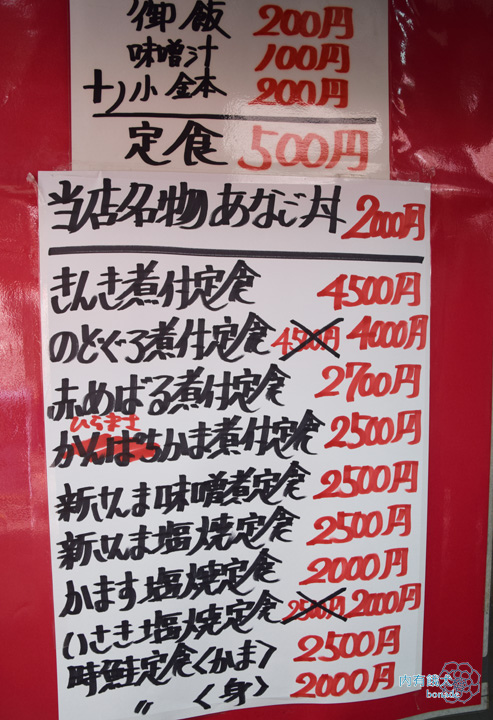 御飯 200円
味噌汁 100円
+)小鉢 200円
定食 500円
当店名物 あなご丼 2000円
きんき煮付定食 4500円
のどぐろ煮付定食 4500円 4000円
赤めばる煮付定食 2700円
ひらまさ
かんぱちかま煮付定食 2500円
新さんま味噌煮定食 2500円
新さんま塩焼定食 2500円
かます塩焼定食 2000円
いさき塩焼定食 2500円 2000円
時鮭定食〈かま〉 2500円
〃 〈身〉 2000円
内有餓犬
bonada